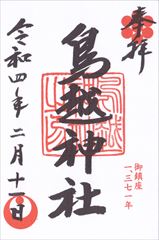 奉拝
鳥越神社
御鎮座
一、三七一年
令和四年二月十一日